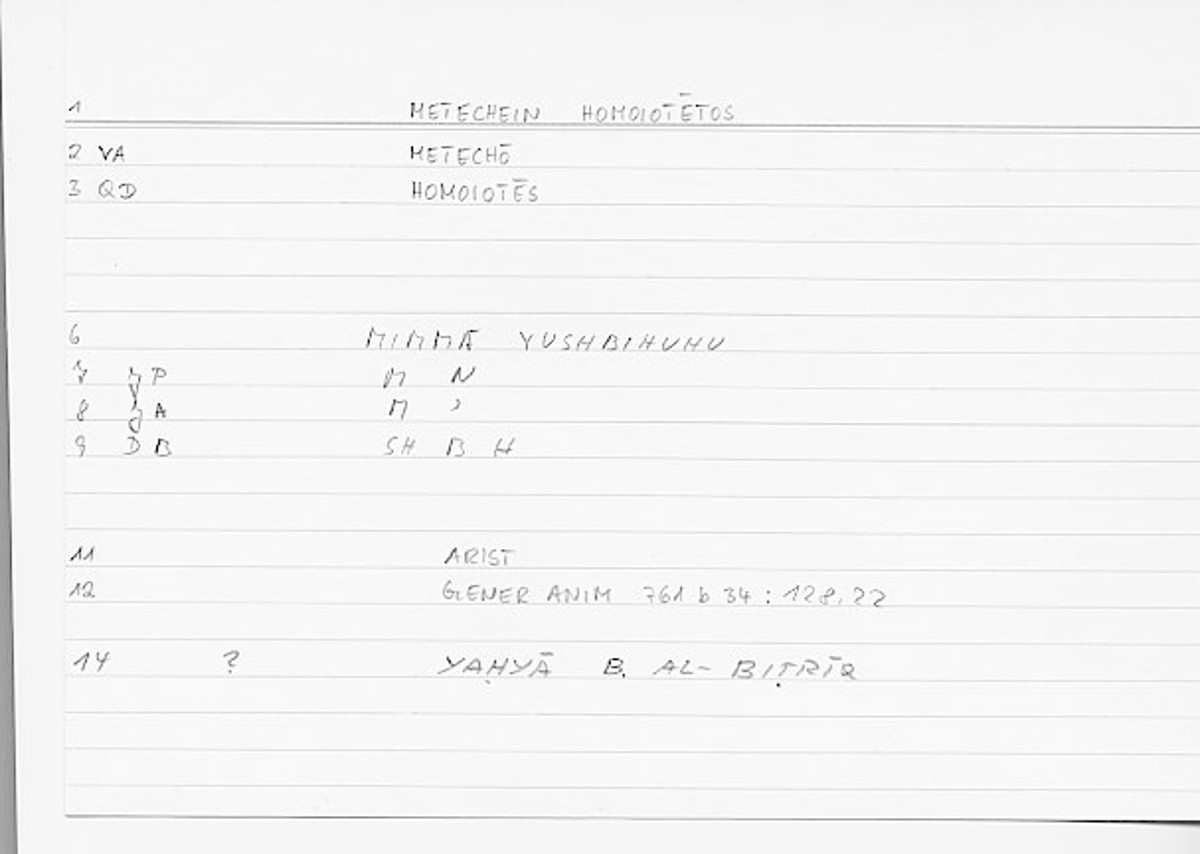 1 METECHEIN HOMOIOTĒTOS
2 VA METECHŌ
3 QD HOMOIOTĒS
6 MIMMĀ YUSHBIHUHU
7 P M N
8 A M ʾ
9 D B SH B H
11 ARIST
12 GENER ANIM 761 b 34 : 128.22
14 ? YAḤYĀ B. AL- BIṬRĪQ